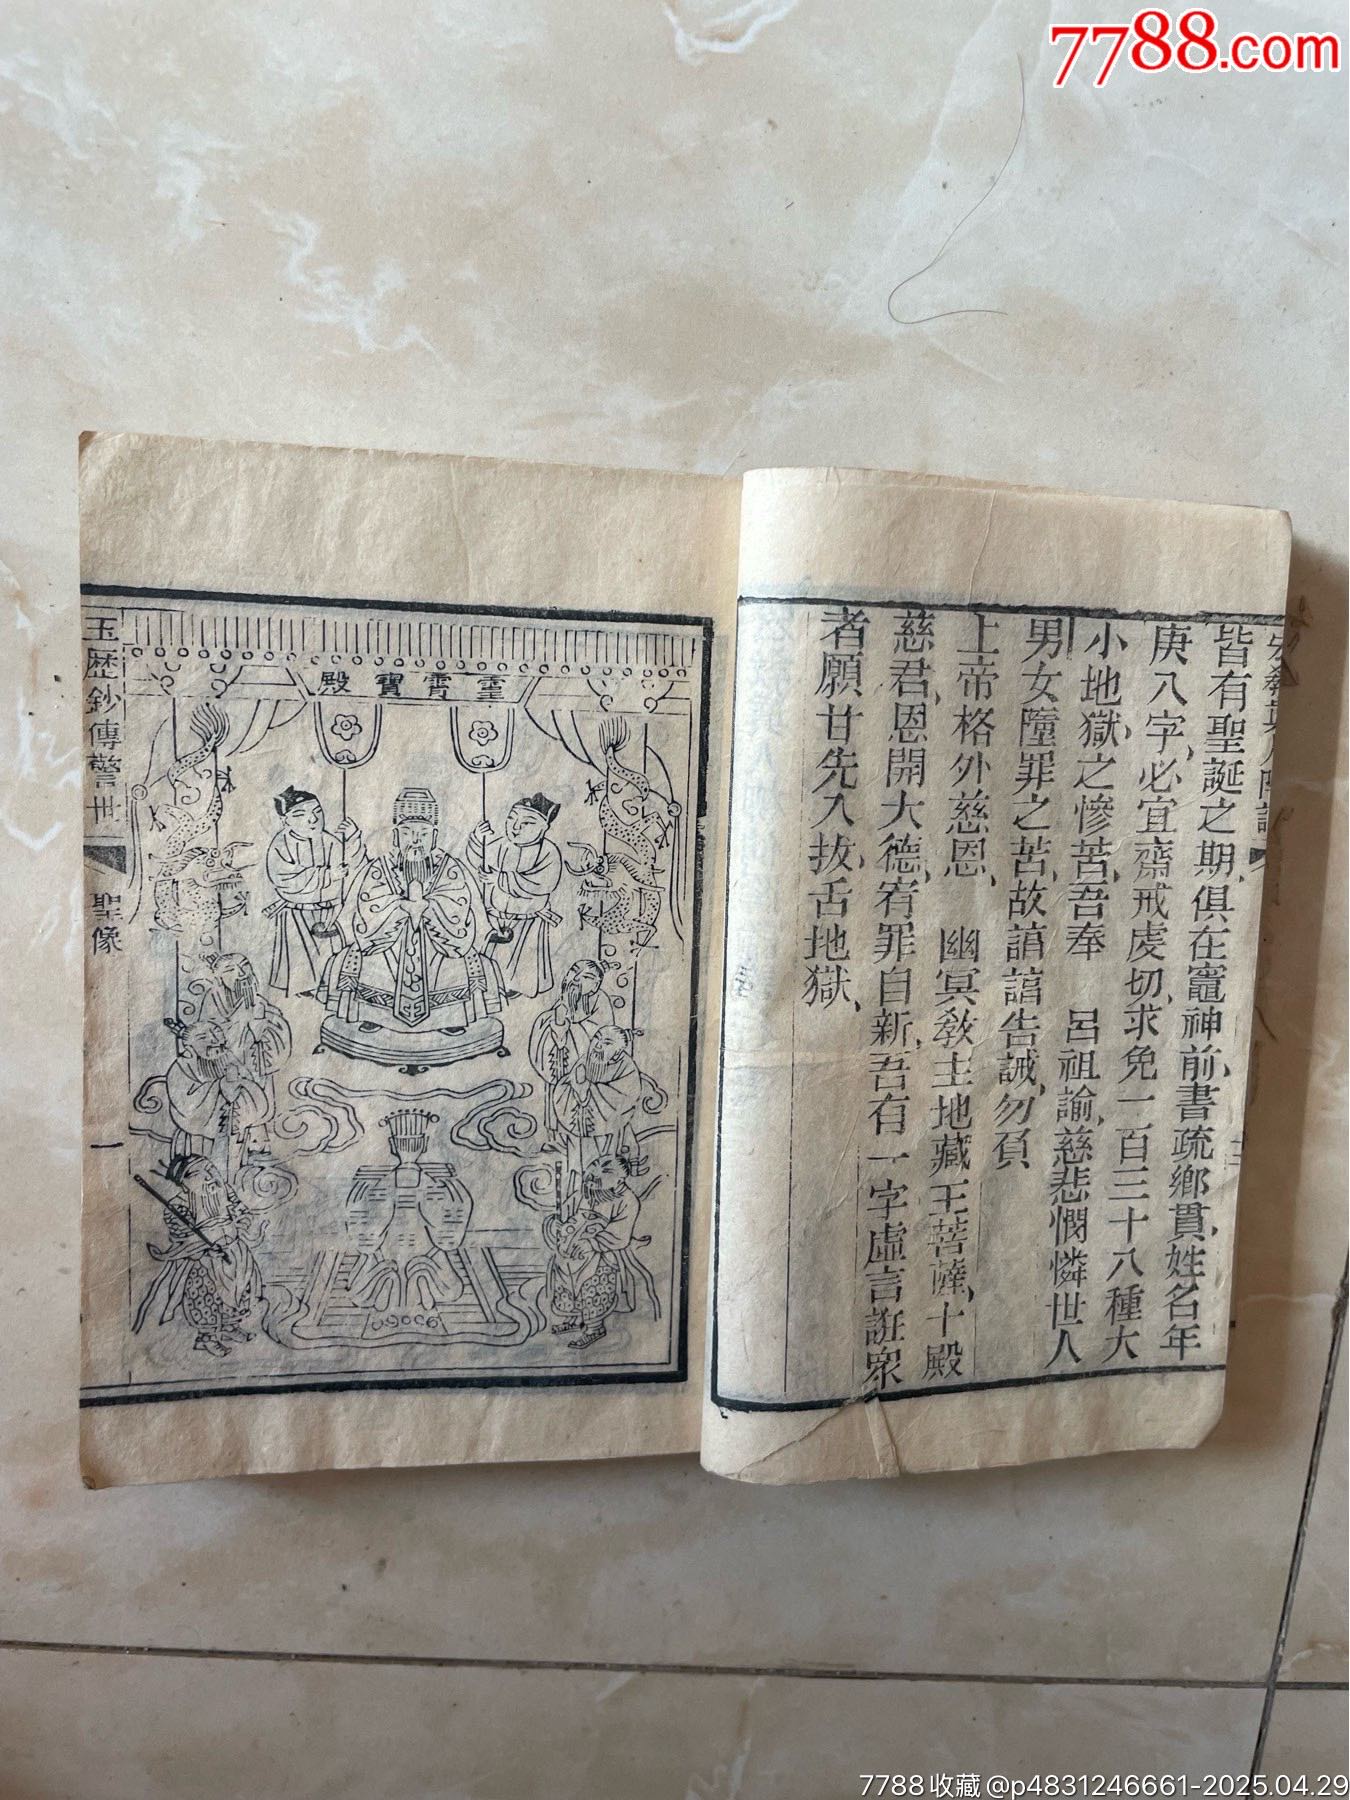 7788.com
皆有聖誕之期、俱在竈神前、書疏鄉貫、姓名年
庚八字、必宜齋戒虔切、求免一百三十八種大
小地獄之慘苦、吾奉 呂祖諭、慈悲憫憐世人
男女墮罪之苦、故諄諄告誡、勿負
上帝格外慈恩、 幽冥敎主地藏王菩薩、十殿
慈君、恩開大德、宥罪自新、吾有一字虛言誑眾
者、願甘先入拔舌地獄、
靈霄寶殿
玉歷鈔傳警世
聖像
一
7788收藏@p4831246661-2025.04.29